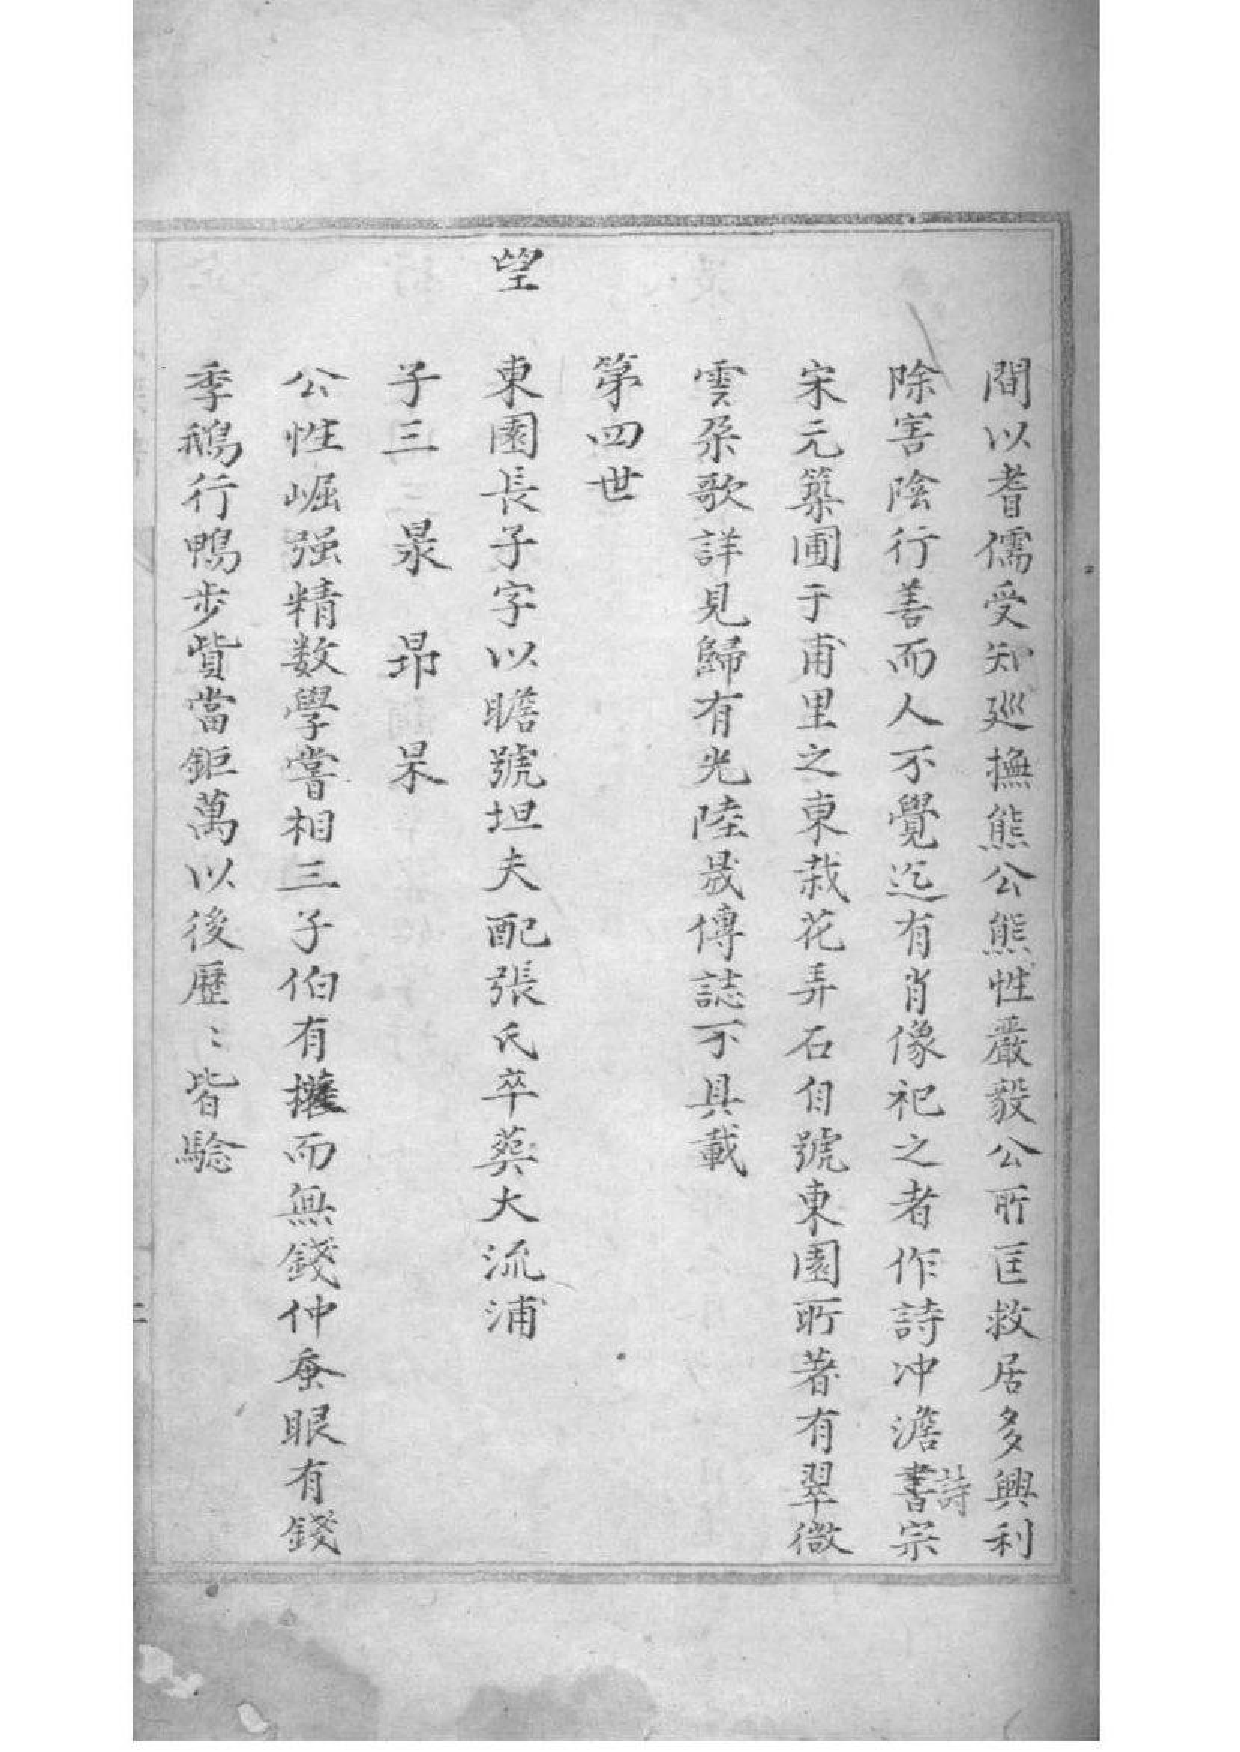 間以耆儒受知廵撫熊公熊性嚴毅公所匡救居多興利
除害陰行善而人不覺迄有肖像祀之者作詩冲澹書宗
詩
宋元築圃于甫里之東栽花弄石自號東園所著有翠微
雲朶歌詳見歸有光陸晟傳誌不具載
第四世
望
東園長子字以瞻號坦夫配張氏卒葬大流浦
子三 晜 昻 杲
公性崛强精数學嘗相三子伯有權而無錢仲蚕眼有錢
季鵝行鴨步貲當鉅萬以後歷〻皆騐